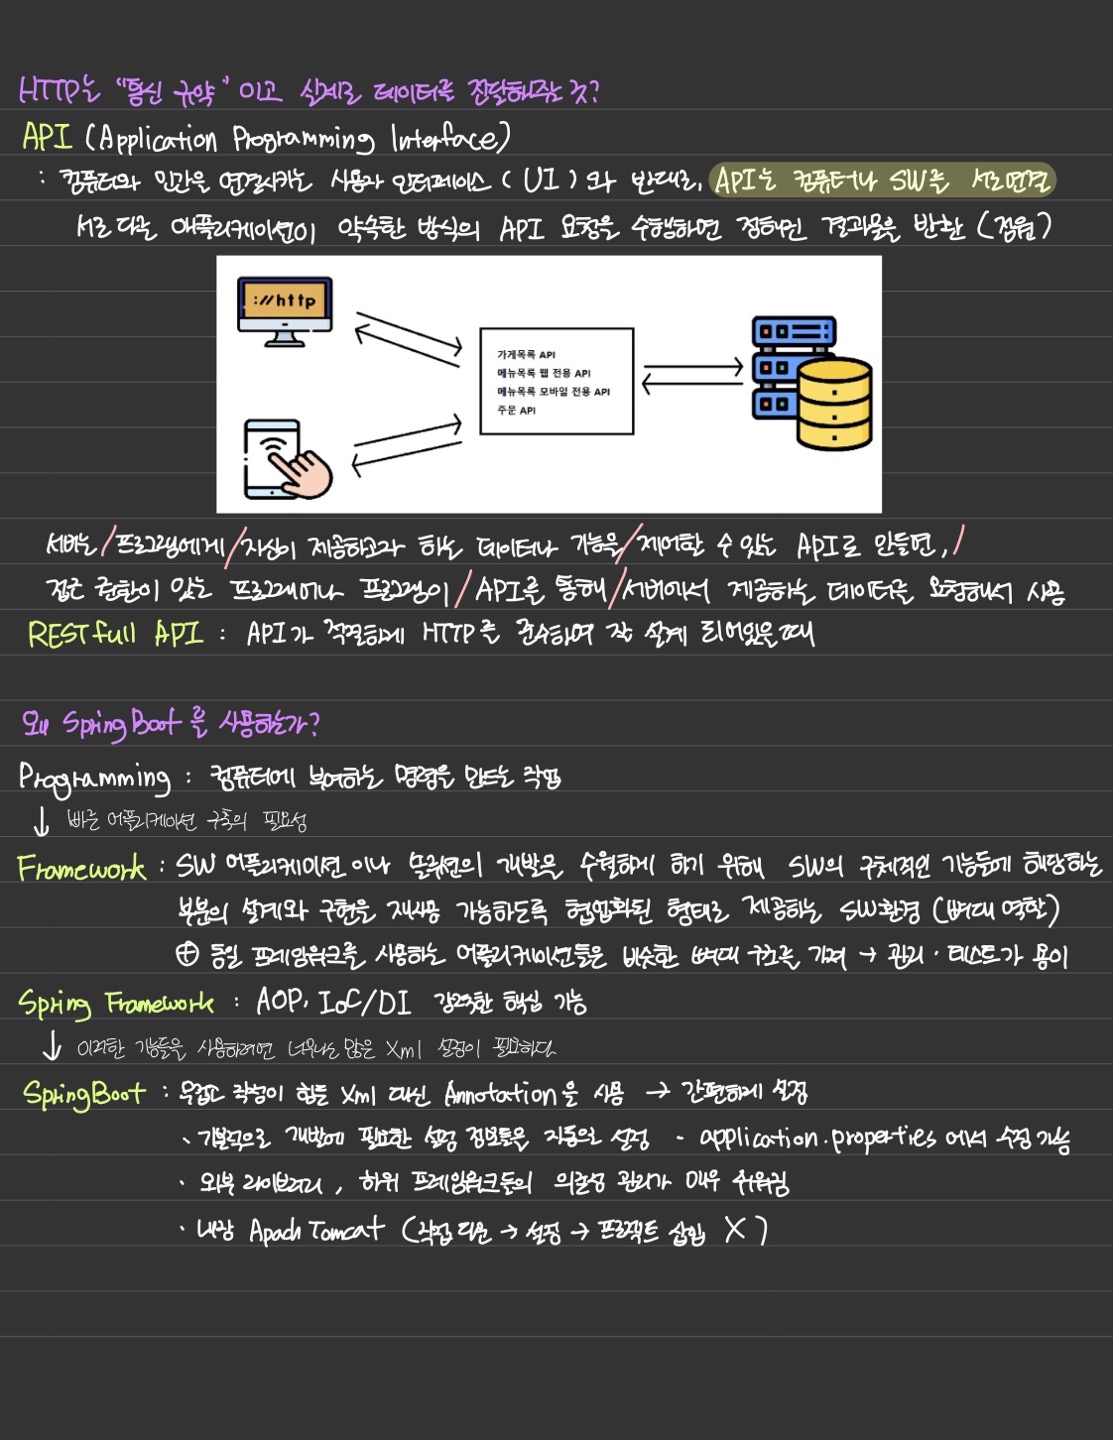 HTTP는 "통신 규약" 이고 실제로 데이터를 전달해주는 것?
API (Application Programming Interface)
: 컴퓨터와 인간을 연결시키는 사용자 인터페이스 (UI) 와 반대로, API는 컴퓨터나 SW를 서로 연결
서로 다른 애플리케이션이 약속한 방식의 API 요청을 수행하면 정해진 결과물을 반환 (점원)
://http
가게목록 API
메뉴목록 웹 전용 API
메뉴목록 모바일 전용 API
주문 API
서버는 / 프로그램에게 / 자신이 제공하고자 하는 데이터나 기능을 / 제어할 수 있는 API로 만들면, /
접근 권한이 있는 프로그래머나 프로그램이 / API를 통해 / 서버에서 제공하는 데이터를 요청해서 사용
RESTfull API : API가 적절하게 HTTP를 준수하여 잘 설계 되어있을때
왜 SpringBoot를 사용하는가?
Programming : 컴퓨터에 부여하는 명령을 만드는 작업
↓ 빠른 어플리케이션 구축의 필요성
Framework : SW 어플리케이션 이나 솔루션의 개발을 수월하게 하기 위해 SW의 구체적인 기능들에 해당하는
부분의 설계와 구현을 재사용 가능하도록 협업화된 형태로 제공하는 SW환경 (뼈대 역할)
⊕ 동일 프레임워크를 사용하는 어플리케이션들은 비슷한 뼈대 구조를 가져 → 관리 · 테스트가 용이
Spring Framework : AOP, IoC/DI 강력한 핵심 기능
↓ 이러한 기능들을 사용하려면 너무나도 많은 Xml 설정이 필요하다
SpringBoot : 무겁고 작성이 힘든 Xml 대신 Annotation을 사용 → 간편하게 설정
· 기본적으로 개발에 필요한 설정 정보들을 자동으로 설정 - application.properties 에서 수정 가능
· 외부 라이브러리, 하위 프레임워크들의 의존성 관리가 매우 쉬워짐
· 내장 Apach Tomcat (직접 다운 → 설정 → 프로젝트 삽입 X)